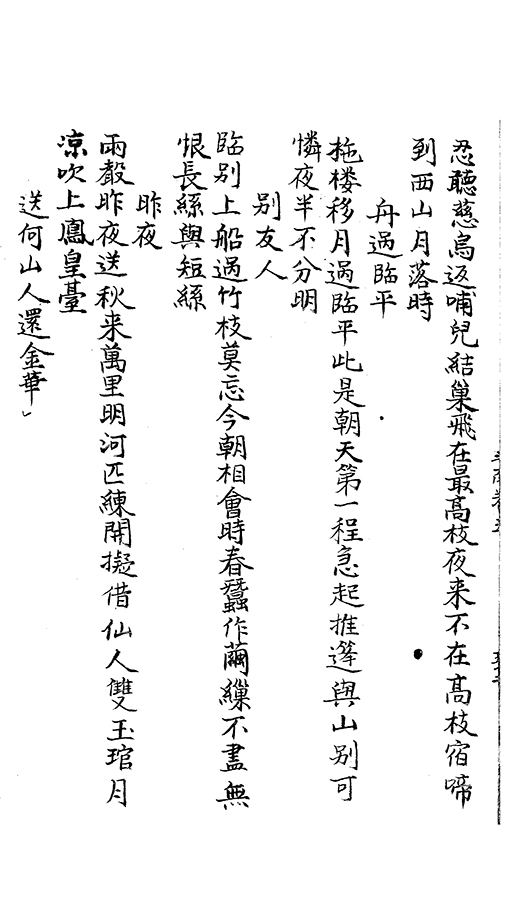 忍聽慈烏返哺兒結巢飛在最高枝夜来不在高枝宿啼
到西山月落時
舟過臨平
拖楼移月過臨平此是朝天第一程急起推篷與山别可
憐夜半不分明
别友人
臨别上船過竹枝莫忘今朝相會時春蠶作繭繅不盡無
恨長絲與短絲
昨夜
雨聲昨夜送秋来萬里明河匹練開擬借仙人雙玉琯月
凉吹上鳳皇臺
送何山人還金華